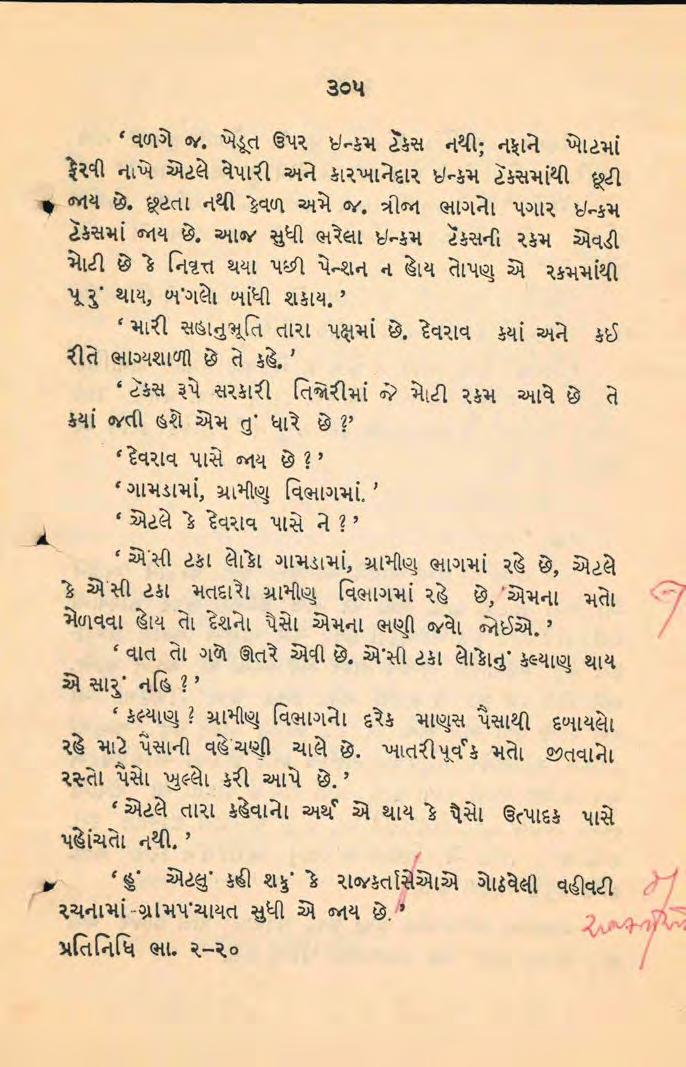 ૩૦૫
‘વળગે જ. ખેડૂત ઉપર ઇન્કમ ટૅક્સ નથી; નફાને ખોટમાં
ફેરવી નાખે એટલે વેપારી અને કારખાનેદાર ઇન્કમ ટૅક્સમાંથી છૂટી
જાય છે. છૂટતા નથી કેવળ અમે જ. ત્રીજા ભાગનો પગાર ઇન્કમ
ટૅક્સમાં જાય છે. આજ સુધી ભરેલા ઇન્કમ ટૅક્સની રકમ એવડી
મોટી છે કે નિવૃત્ત થયા પછી પેન્શન ન હોય તોપણ એ રકમમાંથી
પૂરું થાય, બંગલો બાંધી શકાય.’
‘મારી સહાનુભૂતિ તારા પક્ષમાં છે. દેવરાવ ક્યાં અને કઈ
રીતે ભાગ્યશાળી છે તે કહે.’
‘ટૅક્સ રૂપે સરકારી તિજોરીમાં જે મોટી રકમ આવે છે તે
ક્યાં જતી હશે એમ તું ધારે છે?’
‘દેવરાવ પાસે જાય છે?’
‘ગામડામાં, ગ્રામીણ વિભાગમાં.’
‘એટલે કે દેવરાવ પાસે ને?’
‘એંસી ટકા લોકો ગામડામાં, ગ્રામીણ ભાગમાં રહે છે, એટલે
કે એંસી ટકા મતદારો ગ્રામીણ વિભાગમાં રહે છે, એમના મતો
મેળવવા હોય તો દેશનો પૈસો એમના ભણી જવો જોઈએ.’
‘વાત તો ગળે ઊતરે એવી છે. એંસી ટકા લોકોનું કલ્યાણ થાય
એ સારું નહિ?’
‘કલ્યાણ? ગ્રામીણ વિભાગનો દરેક માણસ પૈસાથી દબાયલો
રહે માટે પૈસાની વહેંચણી ચાલે છે. ખાતરીપૂર્વક મતો જીતવાનો
રસ્તો પૈસો ખુલ્લો કરી આપે છે.’
‘એટલે તારા કહેવાનો અર્થ એ થાય કે પૈસો ઉત્પાદક પાસે
પહોંચતો નથી.’
‘હું એટલું કહી શકું કે રાજકર્તાસેઓએ ગોઠવેલી વહીવટી
રચનામાં-ગ્રામપંચાયત સુધી એ જાય છે.’
પ્રતિનિધિ ભા. ૨–૨૦